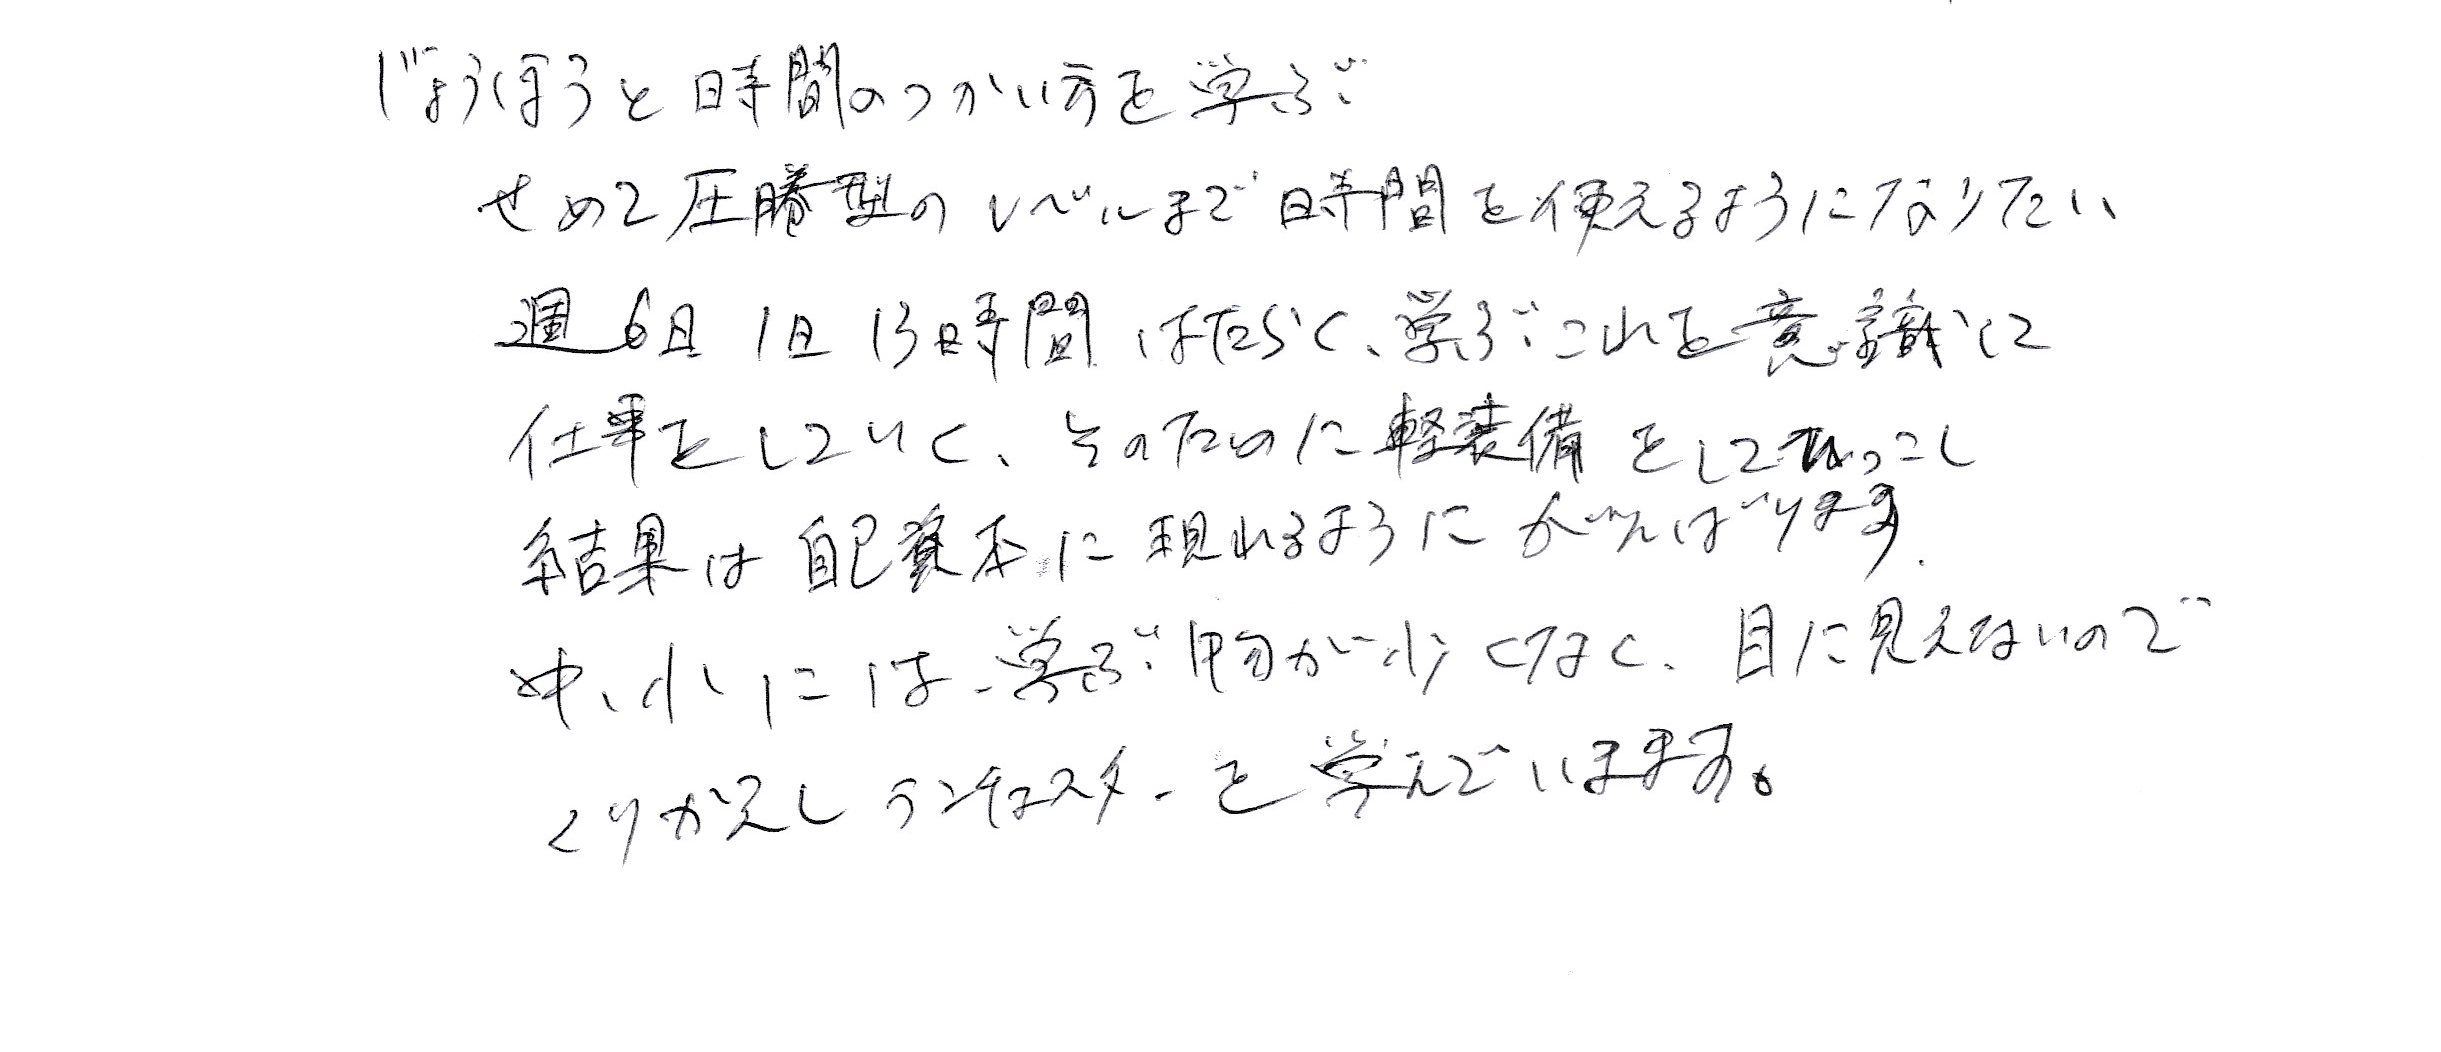 じょうほうと時間のつかい方を学ぶ
せめて圧勝型のレベルまで時間を使えるようになりたい
週6日 1日 13時間 はたらく、学ぶこれを意識して
仕事をしていく、そのために軽装備をして
結果は自己資本に現れるようにがんばります。
中、小には、学ぶ物が少くなく、目に見えないので
くりかえしランチェスターを学んでいまます。